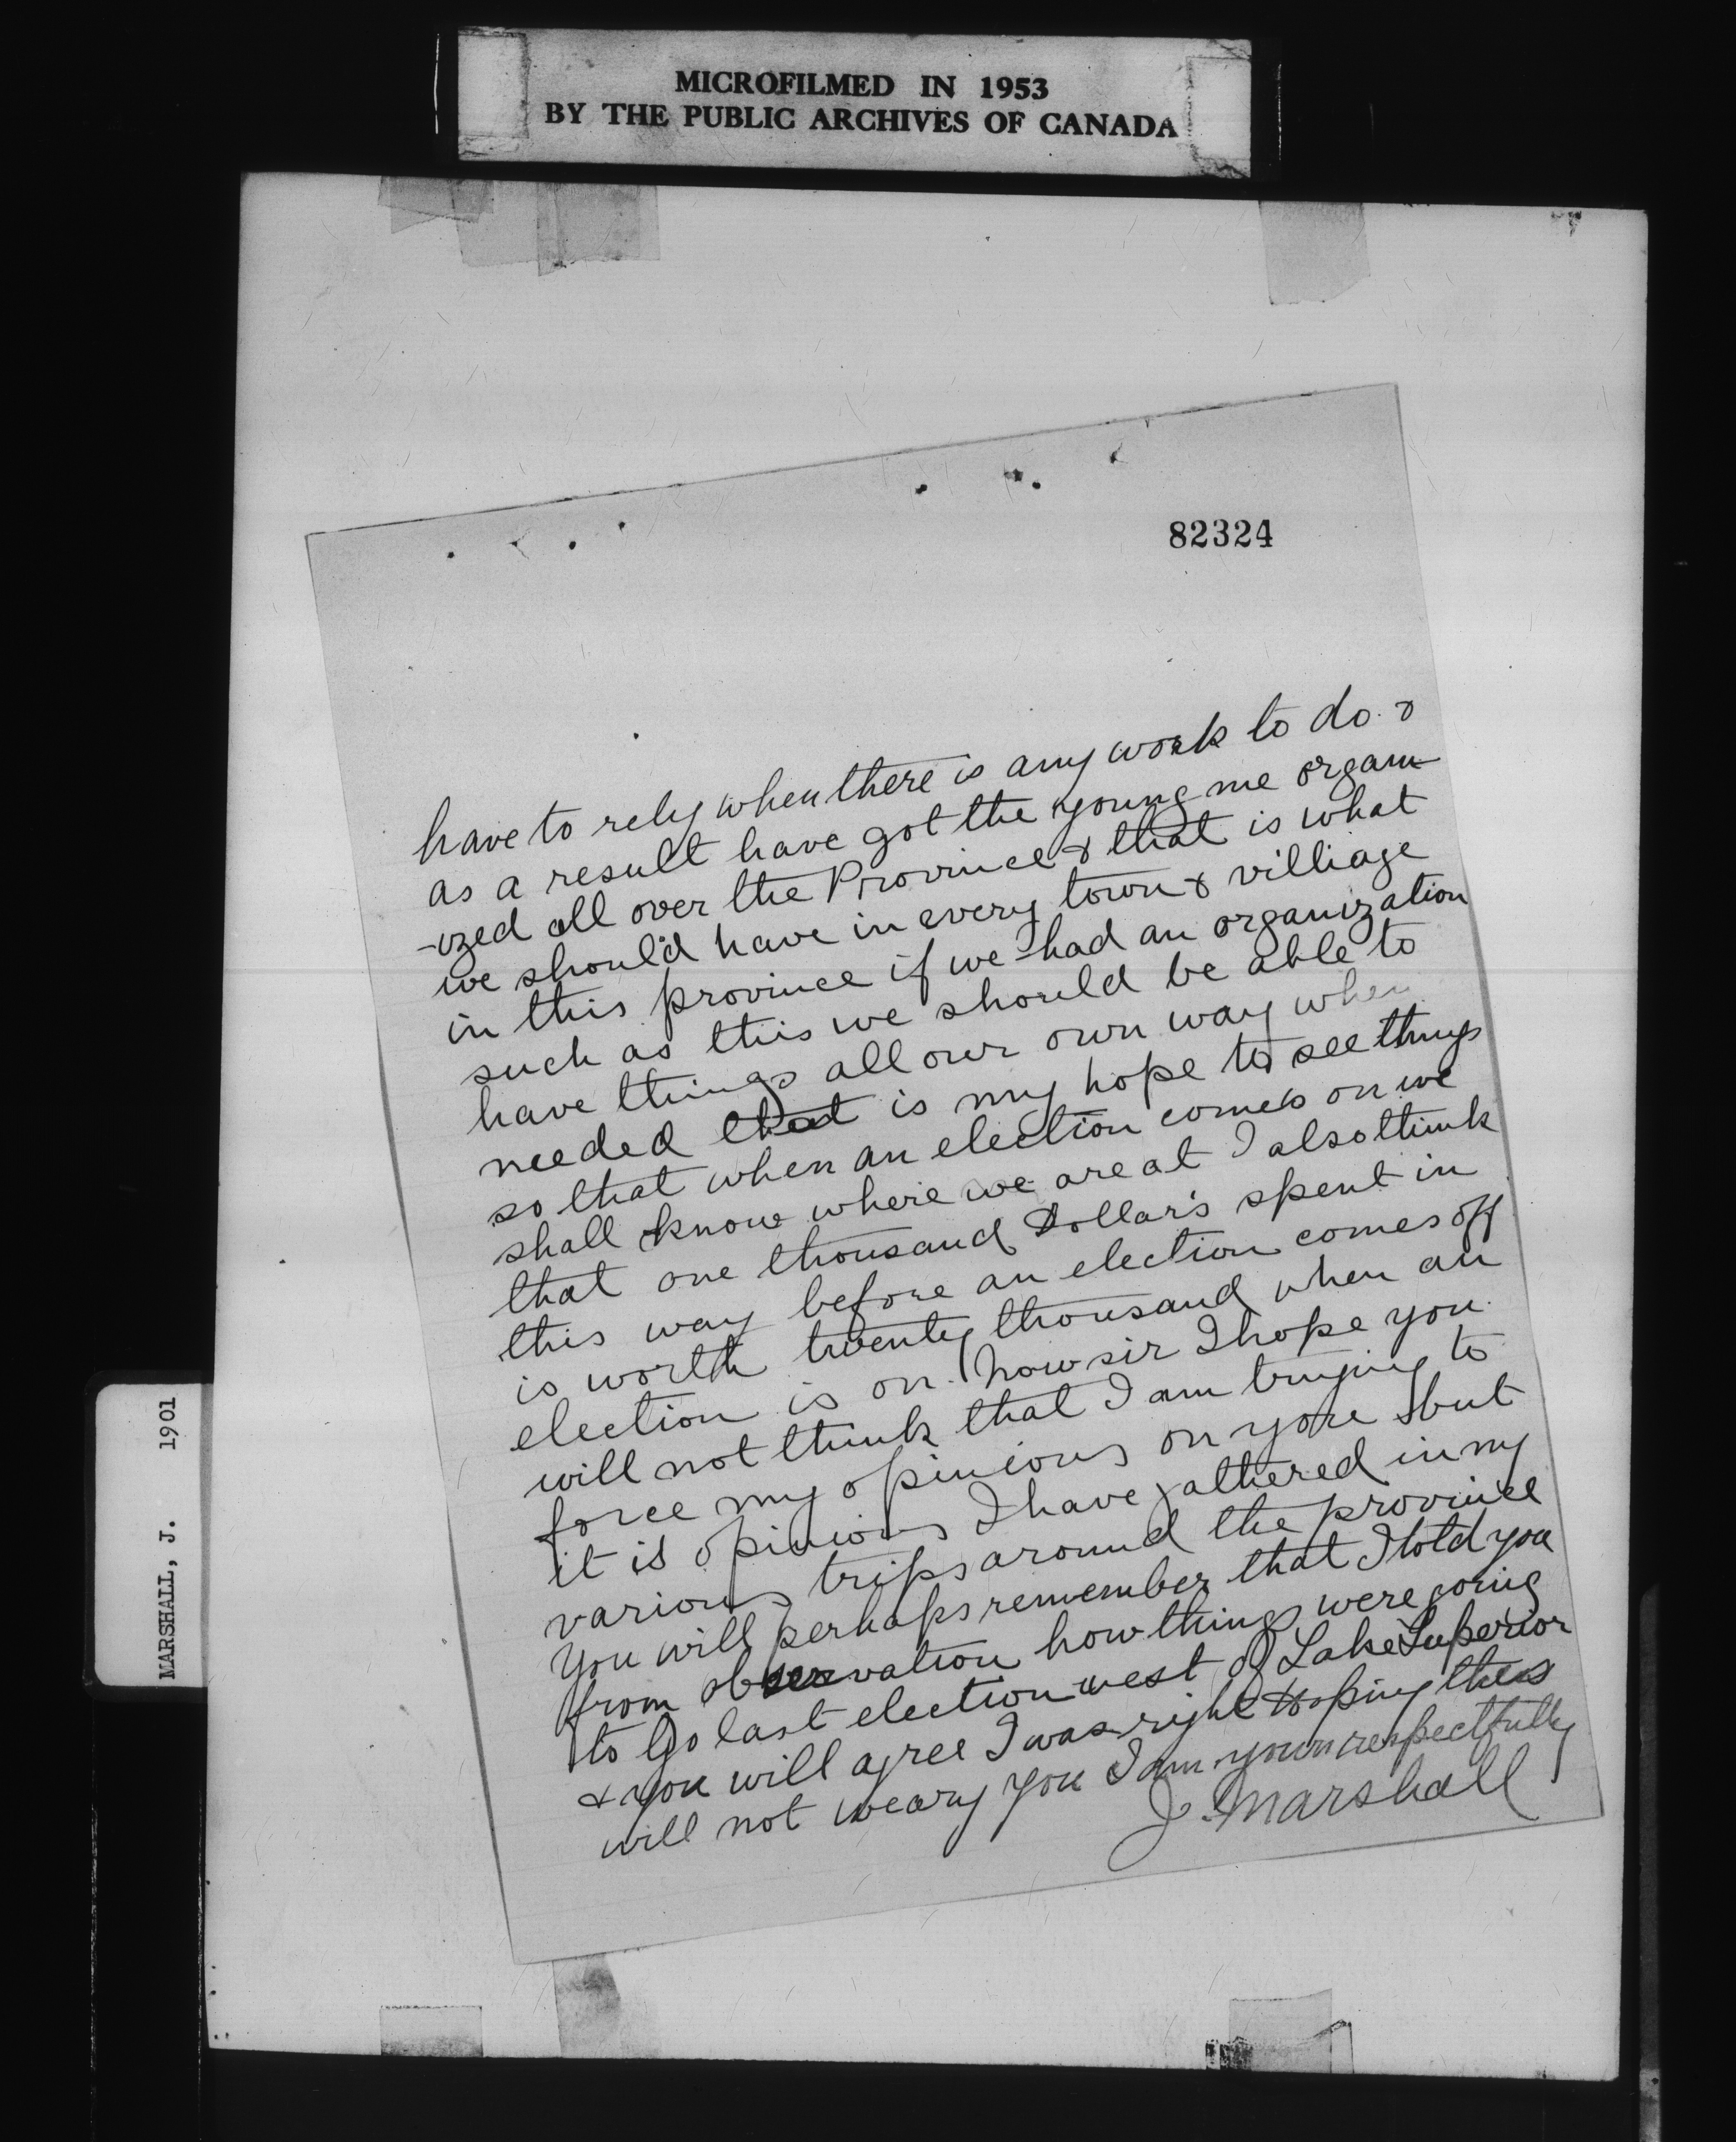 MICROFILMED IN 1953
BY THE PUBLIC ARCHIVES OF CANADA
82324
have to rely when there is any work to do &
as a result have got the young me organ-
-ized all over the Province & that is what
we should have in every town & villiage
in this province if we had an organization
such as this we should be able to
have things all our own way when
needed that is my hope to see things
so that when an election comes on we
shall know where we are at I also think
that one thousand Dollar's spent in
this way before an election comes off
is worth twenty thousand when an
election is on. now sir I hope you
will not think that I am trying to
force my opinions on you but
it is opinions I have gathered in my
various trips around the province
you will perhaps remember that I told you
from observation how things were going
to go last election west of Lake Superior
& you will agree I was right Hoping this
will not weary you I am yours respectfully
J. Marshall
MARSHALL, J. 1901